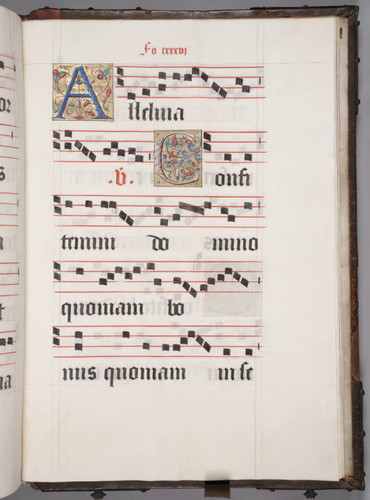 Fo cxxxvj
Alleluia
.v. Confi
temini do mino
quoniam bo
nus quoniam in se